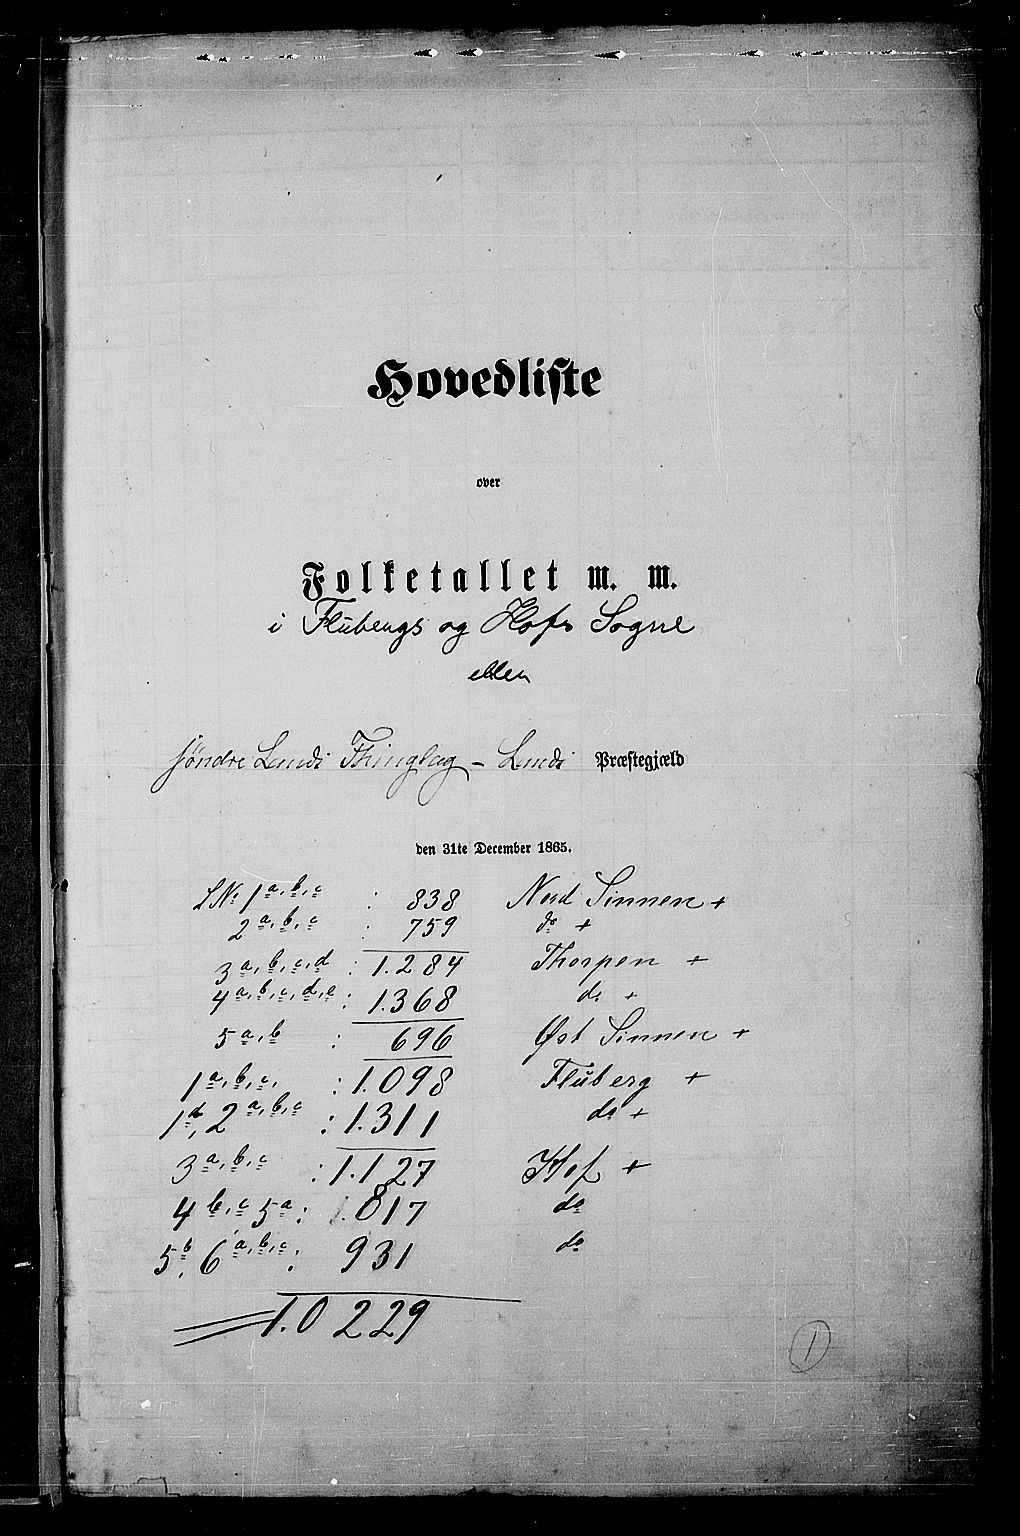 Hovedliste
over
Folketallet m. m.
i Flubergs og Hofs Sogne
eller
søndre Lands Thinglag - Lands Præstegjæld
den 31te December 1865.
LNº 1 a, b, c : 838 Nord Sinnen +
2 a, b, c : 759 do +
3 a, b, c, d : 1.284 Thorpen +
4 a, b, c, d, e : 1.368 do +
5 a, b : 696 Øst Sinnen +
1 a, b, c, : 1.098 Fluberg +
1 d, 2 a, b, c : 1.311 do +
3 a, b, c : 1.127 Hof +
4 b, c 5 a : 817 do
5 b, 6 a, b, c : 931 do
10.229
1